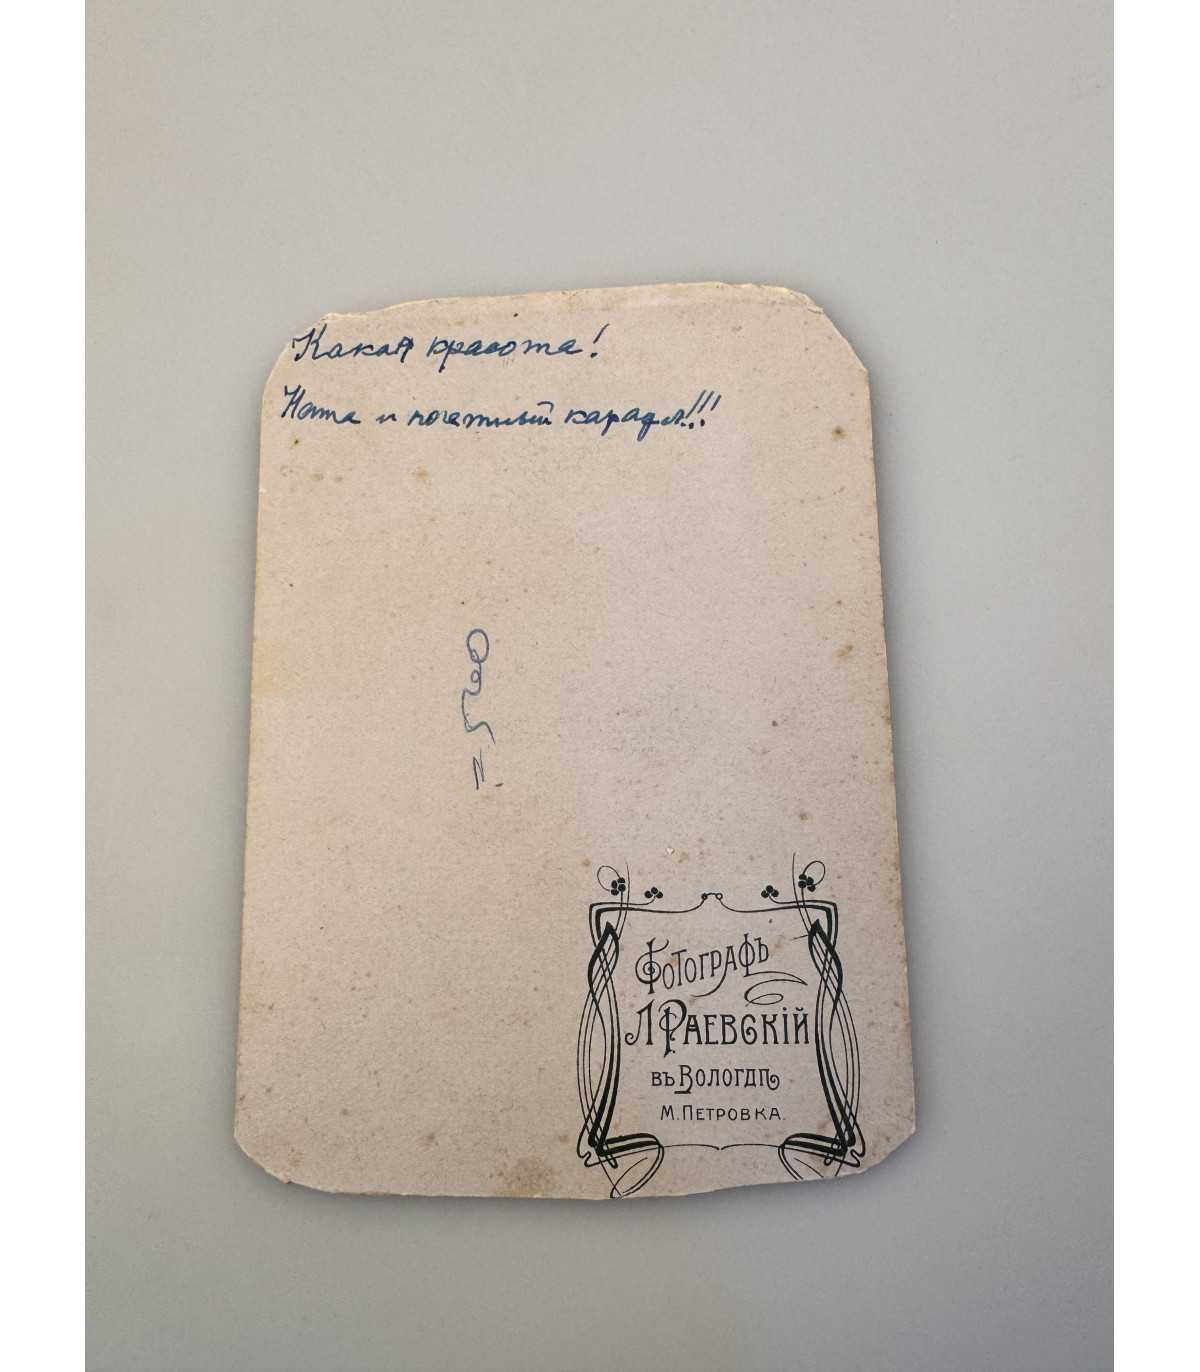 Какая красота!
Ната и почетный караул!!!
Фотографъ
Л Раевскій
въ Вологдѣ
М. Петровка.